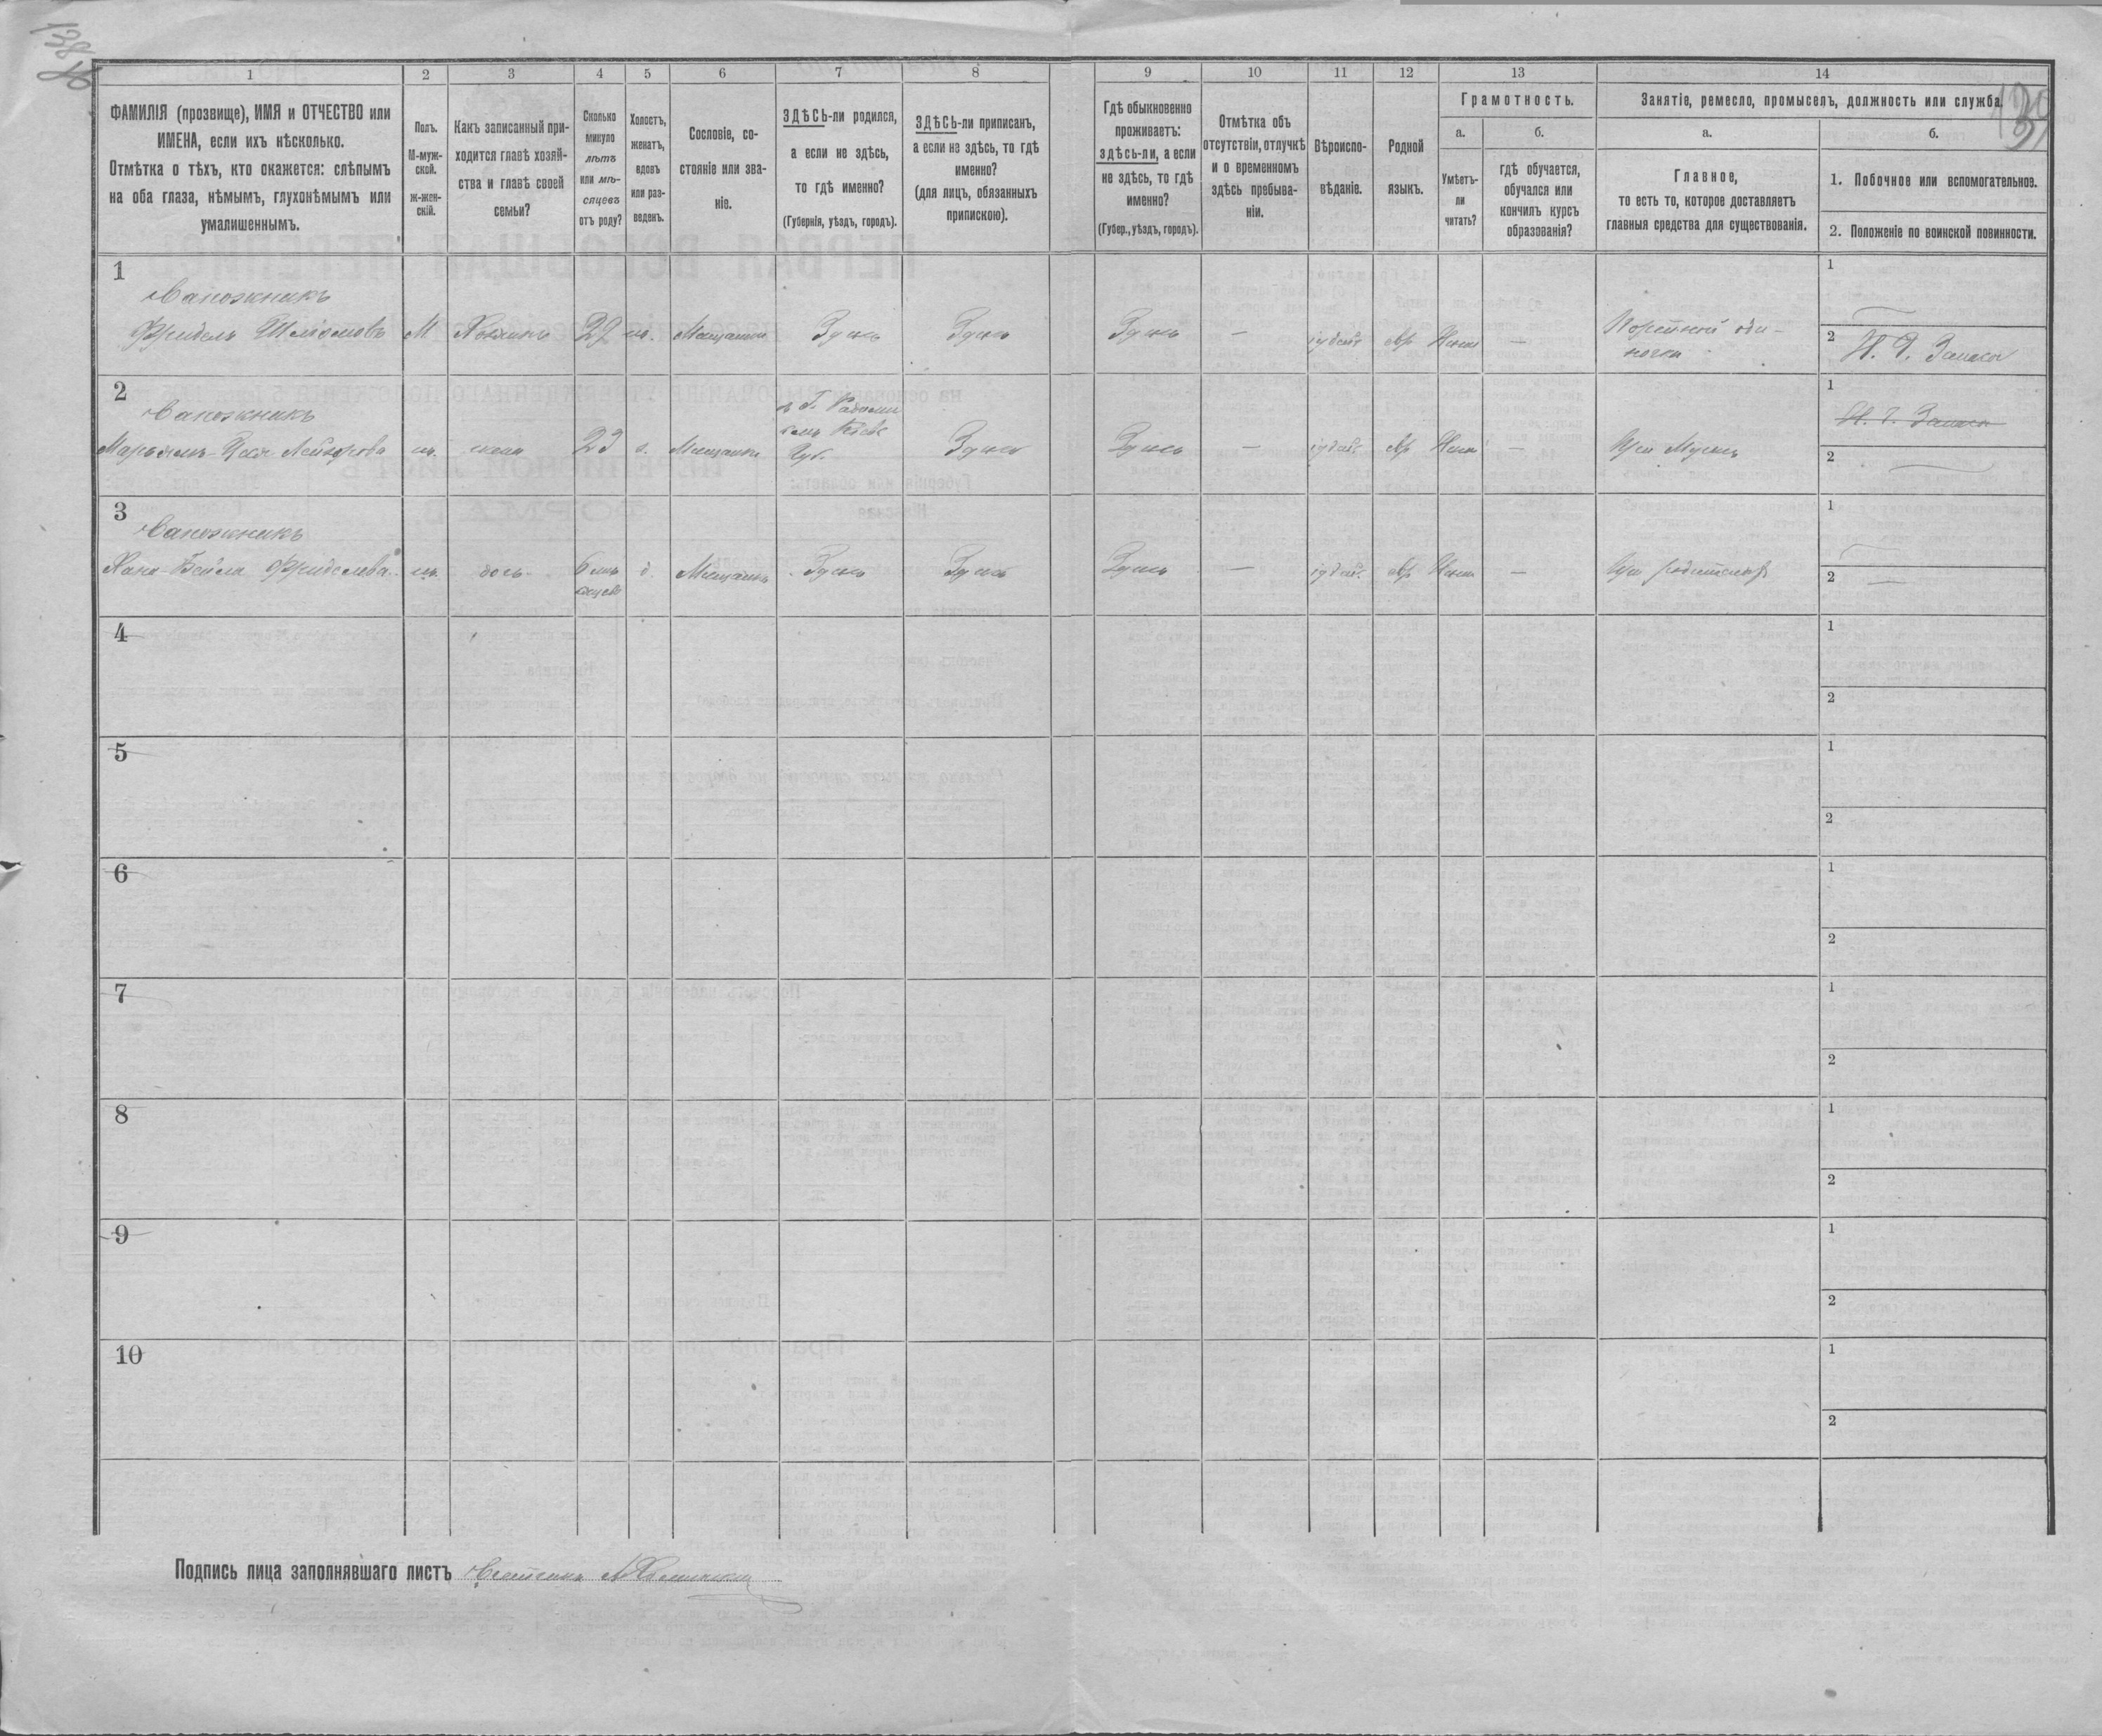 138
1
2
3
4
5
6
7
8
9
10
11
12
13
14
ФАМИЛІЯ (прозвище), ИМЯ и ОТЧЕСТВО или
ИМЕНА, если ихъ нѣсколько.
Отмѣтка о тѣхъ, кто окажется: слѣпымъ
на оба глаза, нѣмымъ, глухонѣмымъ или
умалишеннымъ.
Полъ.
М-муж-
ской.
ж-жен-
скій.
Какъ записанный при-
ходится главѣ хозяй-
ства и главѣ своей
семьи?
Сколько
минуло
лѣтъ
или мѣ-
сяцевъ
отъ роду?
Холостъ,
женатъ,
вдовъ
или раз-
веденъ.
Сословіе, со-
стояніе или зва-
ніе.
ЗДѢСЬ-ли родился,
а если не здѣсь,
то гдѣ именно?
(Губернія, уѣздъ, городъ).
ЗДѢСЬ-ли приписанъ,
а если не здѣсь, то гдѣ
именно?
(для лицъ, обязанныхъ
припискою).
Гдѣ обыкновенно
проживаетъ:
здѣсь-ли, а если
не здѣсь, то гдѣ
именно?
(Губер., уѣздъ, городъ).
Отмѣтка объ
отсутствіи, отлучкѣ
и о временномъ
здѣсь пребыва-
ніи.
Вѣроиспо-
вѣданіе.
Родной
языкъ.
Грамотность.
а.
Умѣетъ-
ли
читать?
б.
гдѣ обучается,
обучался или
кончилъ курсъ
образованія?
Занятіе, ремесло, промыселъ, должность или служба.
а.
Главное,
то есть то, которое доставляетъ
главныя средства для существованія.
б.
1. Побочное или вспомогательное.
2. Положеніе по воинской повинности.
1
Сапожникъ
Фридель Шлiомовъ М Хозяинъ 29 ж. Мещанин Здесь Здесь Здесь — іудей евр Нет — Портной оди-
ночка
1
2 Н. Ч. Запаса
2
Сапожникъ
Марьямъ-Цеся Лейзорова ж. жена 23 з. Мещанка
в Г. Радомы
сль Кіевс
Губ.
Здесь Здесь — іудей евр Нет — При Мужѣ
1 Н. Ч. Запаса
2
3
Сапожникъ
Хана-Бейла Фриделева ж. дочь 6 мѣ
сяцевъ д. Мещанка Здесь Здесь Здесь — іудей евр Нет — При родителях
1
2 —
4
1
2
5
1
2
6
1
2
7
1
2
8
1
2
9
1
2
10
1
2
Подпись лица заполнявшаго листъ